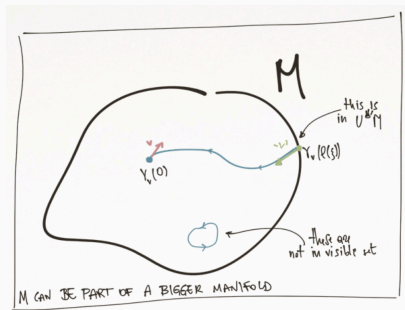 M
this is
in U*M
v
γᵥ(0)
these are
not in visible set
M CAN BE PART OF A BIGGER MANIFOLD